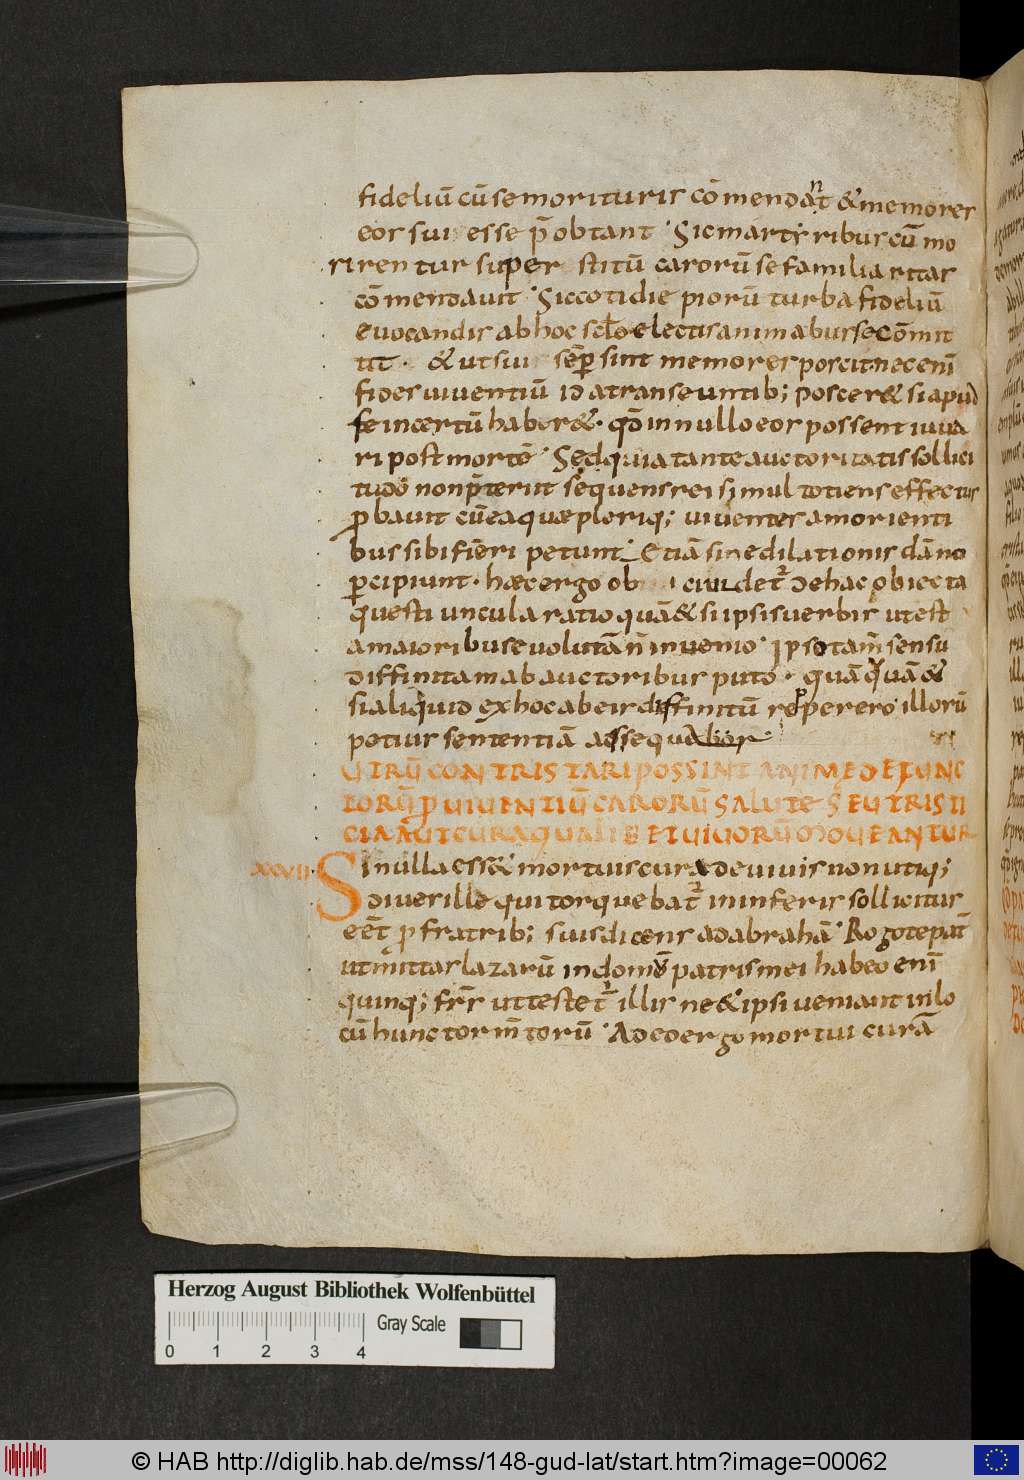 fideliū cū se morituris cōmendant & memores
eor sui esse p̄obtant · Sic martyribus cū mo
rirentur superstitū carorū se familiaritas
cōmendauit · Sic cotidie piorū turba fideliū
euocandis ab hoc sc̄lo electis animabus se cōmit
tit · & ut sui sēp sint memores poscit · nec enī
fides uiuentiū id a transeuntib; poscer& si apud
se incertū haber& · qd̄ in nullo eos possent iuua
ri post mortē · Sed quia tante auctoritatis sollici
tudo non p̄terit sequens rei simul totiens effectus
probauit cū ea quæ pleriq; uiuentes a morienti
bus sibi fieri petunt · Etiā sine dilationis dāno
percipiunt · hæc ergo ob de hac obiecta
questiuncula ratio quā & si ipsis uerbis ut est
a maioribus euolutā n̄ inuenio · Ipso tam̄ sensu
diffinitam ab auctoribus puto · quā quā &
si aliquid ex hoc ab eis diffinitū repperero illorū
potius sententiā assequa
UTRŪ CONTRISTARI POSSINT ANIMĘ DEFUNC
TORŪ P UIUENTIŪ CARORŪ SALUTE S EU TRISTI
CIA AUT CURA QUALIB ET UIUORŪ MOUEANTUR
XXVII Si nulla ess& mortuis cura de uiuis non utiq;
diues ille qui torquebat in inferis sollicitus
eēt p fratrib; suis dicens ad abrahā · Rogo te pat̄
ut mittas lazarū in domū patris mei habeo enī
quinq; frs̄ ut testet̄ illis ne & ipsi ueniant in lo
cū hunc tormtorū · Adeo ergo mortui curā
Herzog August Bibliothek Wolfenbüttel
Gray Scale
0 1 2 3 4
© HAB http://diglib.hab.de/mss/148-gud-lat/start.htm?image=00062